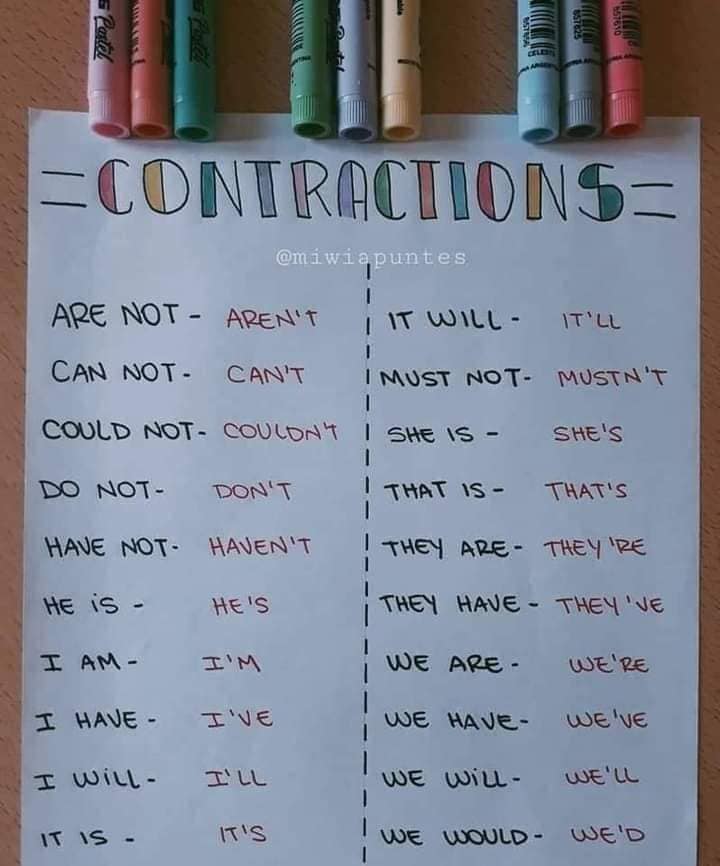 Pastel
Pastel
=CONTRACTIONS=
@miwiapuntes
ARE NOT - AREN'T
CAN NOT - CAN'T
COULD NOT - COULDN'T
DO NOT - DON'T
HAVE NOT - HAVEN'T
HE iS - HE'S
I AM - I'M
I HAVE - I'VE
I WiLL - I'LL
IT IS - IT'S
IT WILL - IT'LL
MUST NOT - MUSTN'T
SHE IS - SHE'S
THAT IS - THAT'S
THEY ARE - THEY'RE
THEY HAVE - THEY'VE
WE ARE - WE'RE
WE HAVE - WE'VE
WE WiLL - WE'LL
WE WOULD - WE'D